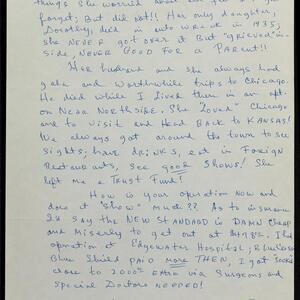 things she worried about
forget; But did not!! Her only daughter,
Dorothy, died in auto wreck in 1935,
she NEVER got over it But "grieved" in-
side, NEVER GOOD FOR A PARENT!!
Her husband and she always had
gala and worthwhile trips to Chicago.
He died while I lived there in an apt.
on Near Northside. She "Loved" Chicago
and to visit and Head BACK to KANSAS!
We always got around the town to see
sights, have drinks, eat in Foreign
Restaurants, see good SHOWS! She
left me a Trust Fund!
How is your operation now and
does it "show" much?? As to
say the NEW STANDARD is DAMN Cheap
and Miserly to get out at
operation at Edgewater Hospital, Blue Cross
Blue Shield PAID more THEN, I got
close to 2000 EXTRA via Surgeons and
Special Doctors needed!